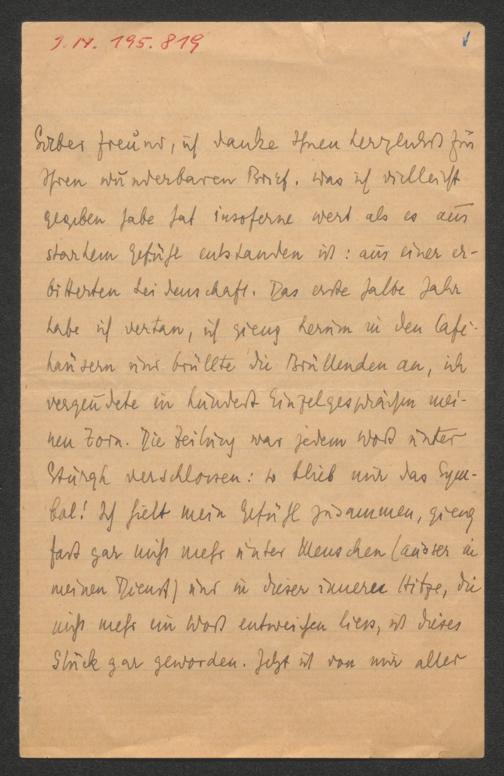 I.N. 195.819
Lieber Freund, ich danke Ihnen herzlichst für
Ihren wunderbaren Brief. Was ich vielleicht
gegeben habe hat insoferne wert als es aus
starkem Gefühl entstanden ist: aus einer er-
bitterten Leidenschaft. Das erste halbe Jahr
habe ich vertan, ich gieng herum in den Café-
häusern und brüllte die Brüllenden an, ich
vergeudete in hundert Einzelgesprächen mei-
nen Zorn. Die Zeitung war jedem Wort unter
Stürgh verschlossen: so blieb mir das Sym-
bol! Ich hielt mein Gefühl zusammen, gieng
fast gar nicht mehr unter Menschen (ausser in
meinen Dienst) und in dieser inneren Hitze, die
nicht mehr ein Wort entweichen liess, ist dieses
Stück gar geworden. Jetzt ist von mir aller